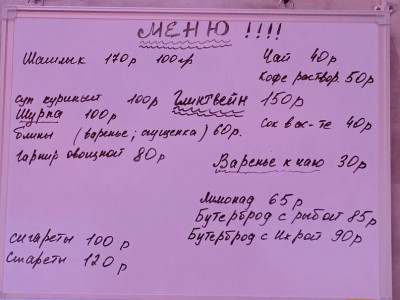 МЕНЮ !!!!
Шашлык 170р 100гр
Чай 40р
Кофе раствор. 50р
суп куриный 100р
Глинтвейн 150р
Шурпа 100р
блины (варенье; сгущенка) 60р.
Сок в ас-те 40р
гарнир овощной 80р
Варенье к чаю 30р
Лимонад 65р
Бутерброд с рыбой 85р
Бутерброд с Икрой 90р
сигареты 100р
сигареты 120р